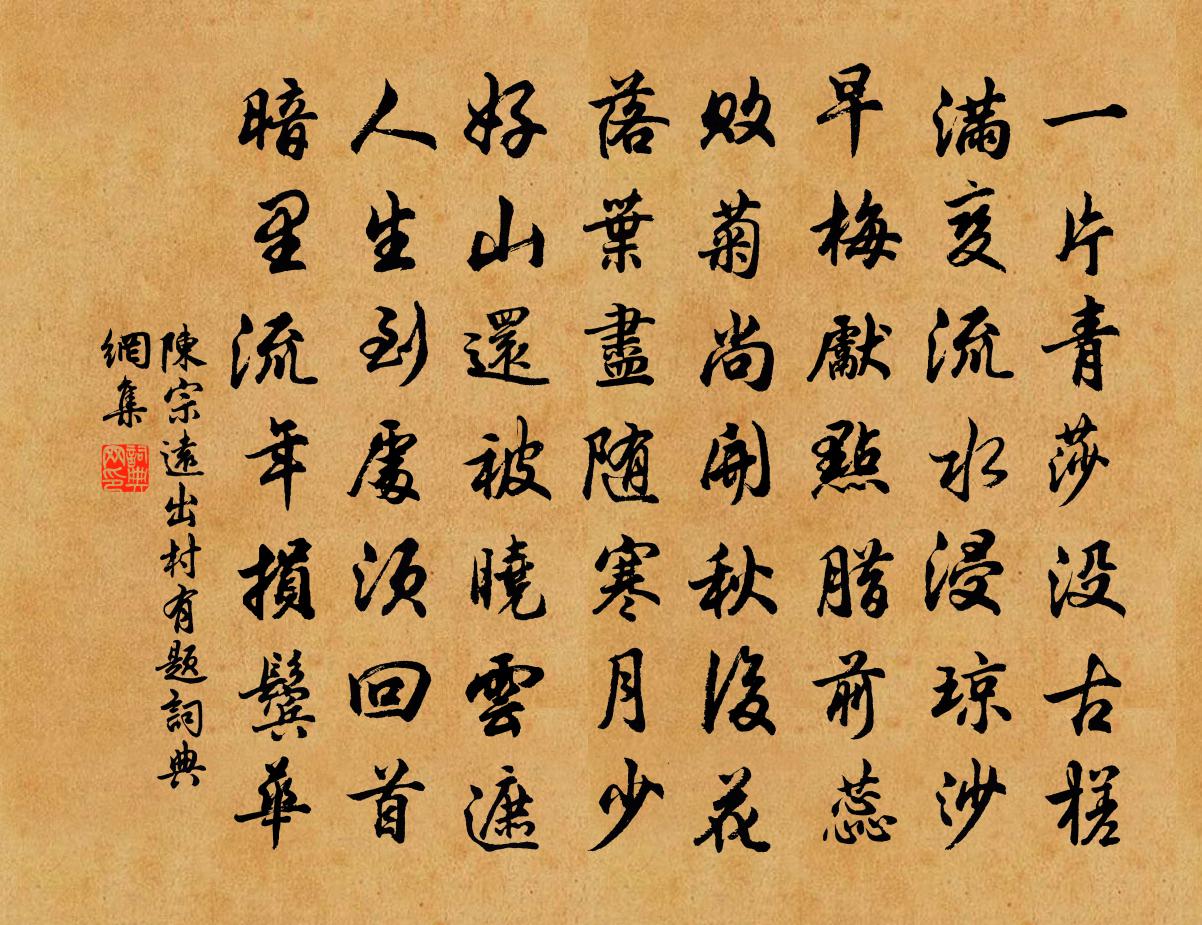 一片青莎没古槎
滿变流水浸琼沙
早梅獻點腊前蕊
敗菊尚開秋後花
落葉盡随寒月少
好山還被曉雲遮
人生到處须回首
暗里流年損鬓華
陳宗遠出村有題詞典
網集
詞典
网印